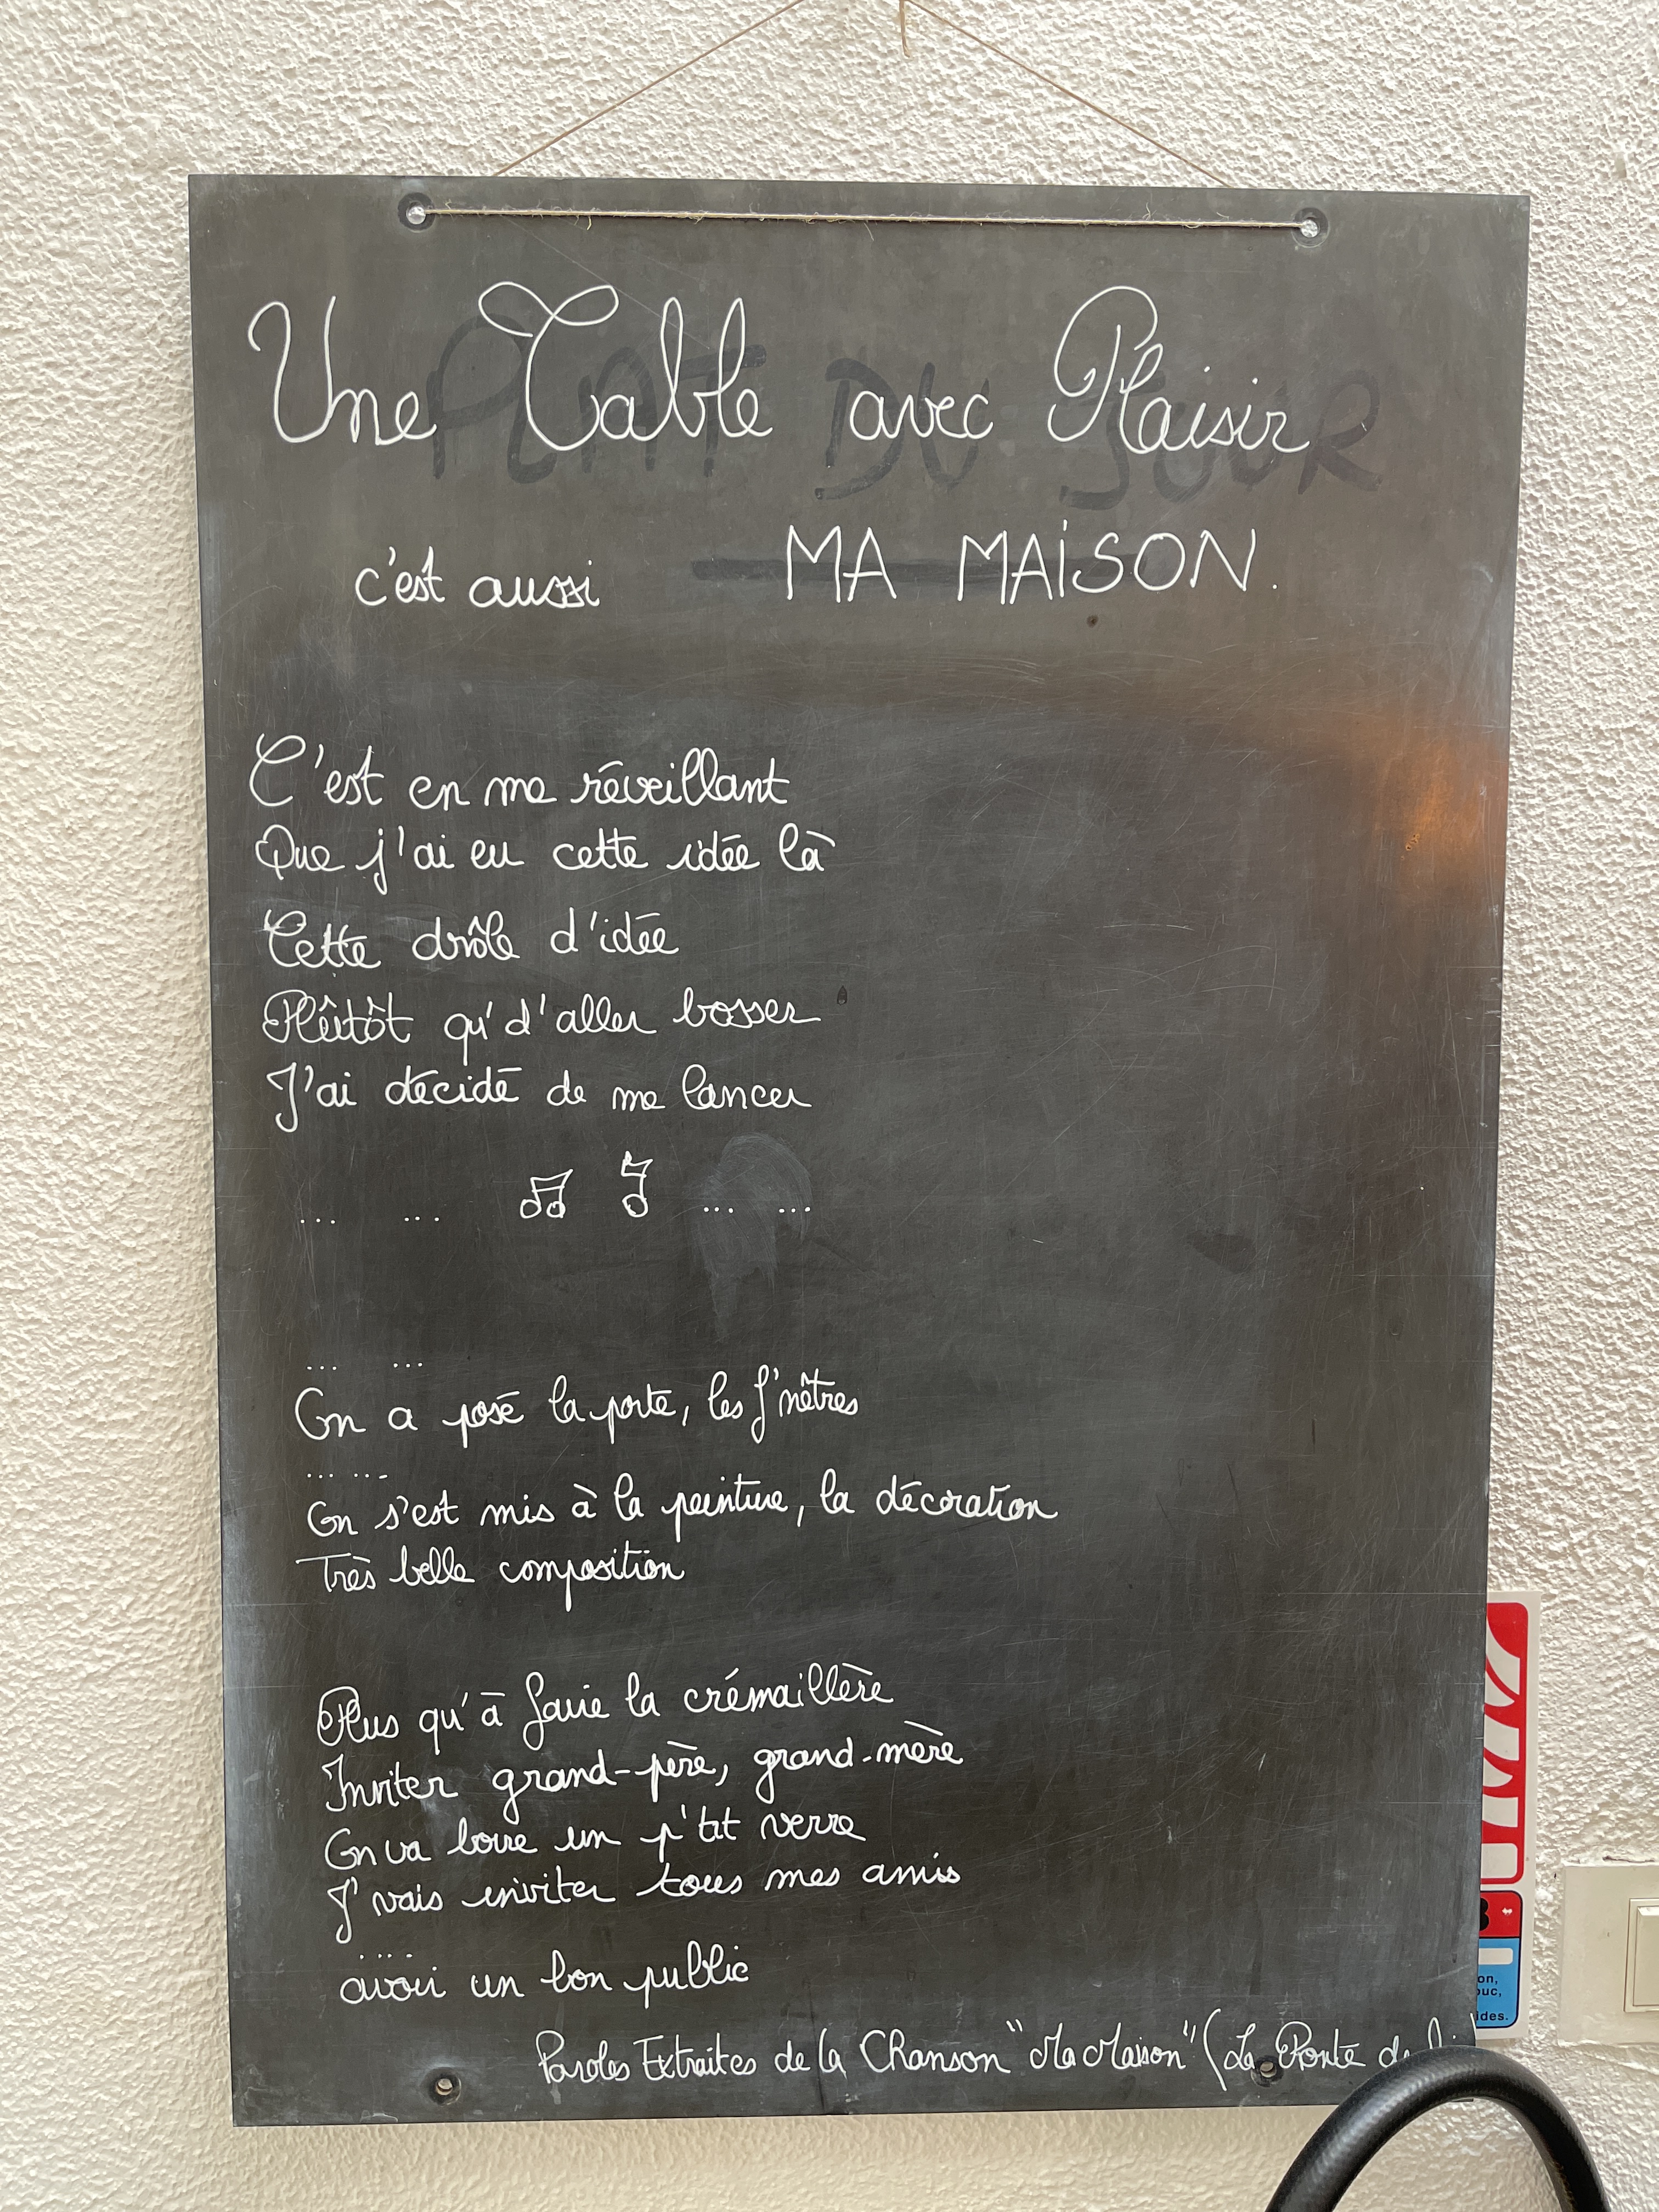 Une Table avec Plaisir
PLAT DU JOUR
c'est aussi MA MAISON.
C'est en me réveillant
Que j'ai eu cette idée là
Cette drôle d'idée
Plûtôt qu'd'aller bosser
J'ai décidé de me lancer
... ... ... ...
... ...
On a posé la porte, les f'nêtres
... ...
On s'est mis à la peinture, la décoration
Très belle composition
Plus qu'à faire la crémaillère
Inviter grand-père, grand-mère
On va boire un p'tit verre
J'vais inviter tous mes amis
....
avoir un bon public
Paroles Extraites de la Chanson "Ma Maison" (La
on,
ouc,
ides.